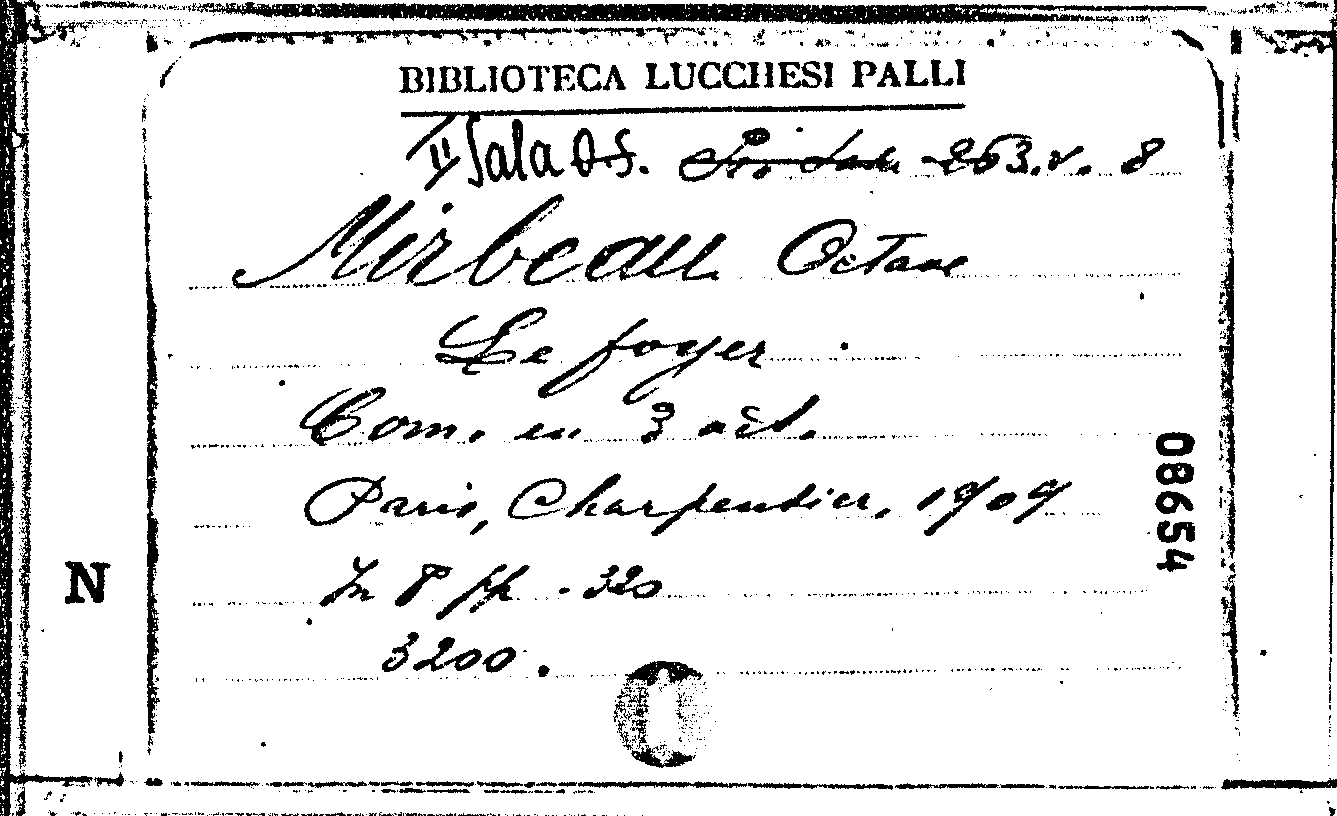 BIBLIOTECA LUCCHESI PALLI
II Sala 263. v. 8
Mirbeau Octave
Le foyer
Com. en 3 act.
Paris, Charpentier, 1909
In 8 pp. 320
3200.
08654
N